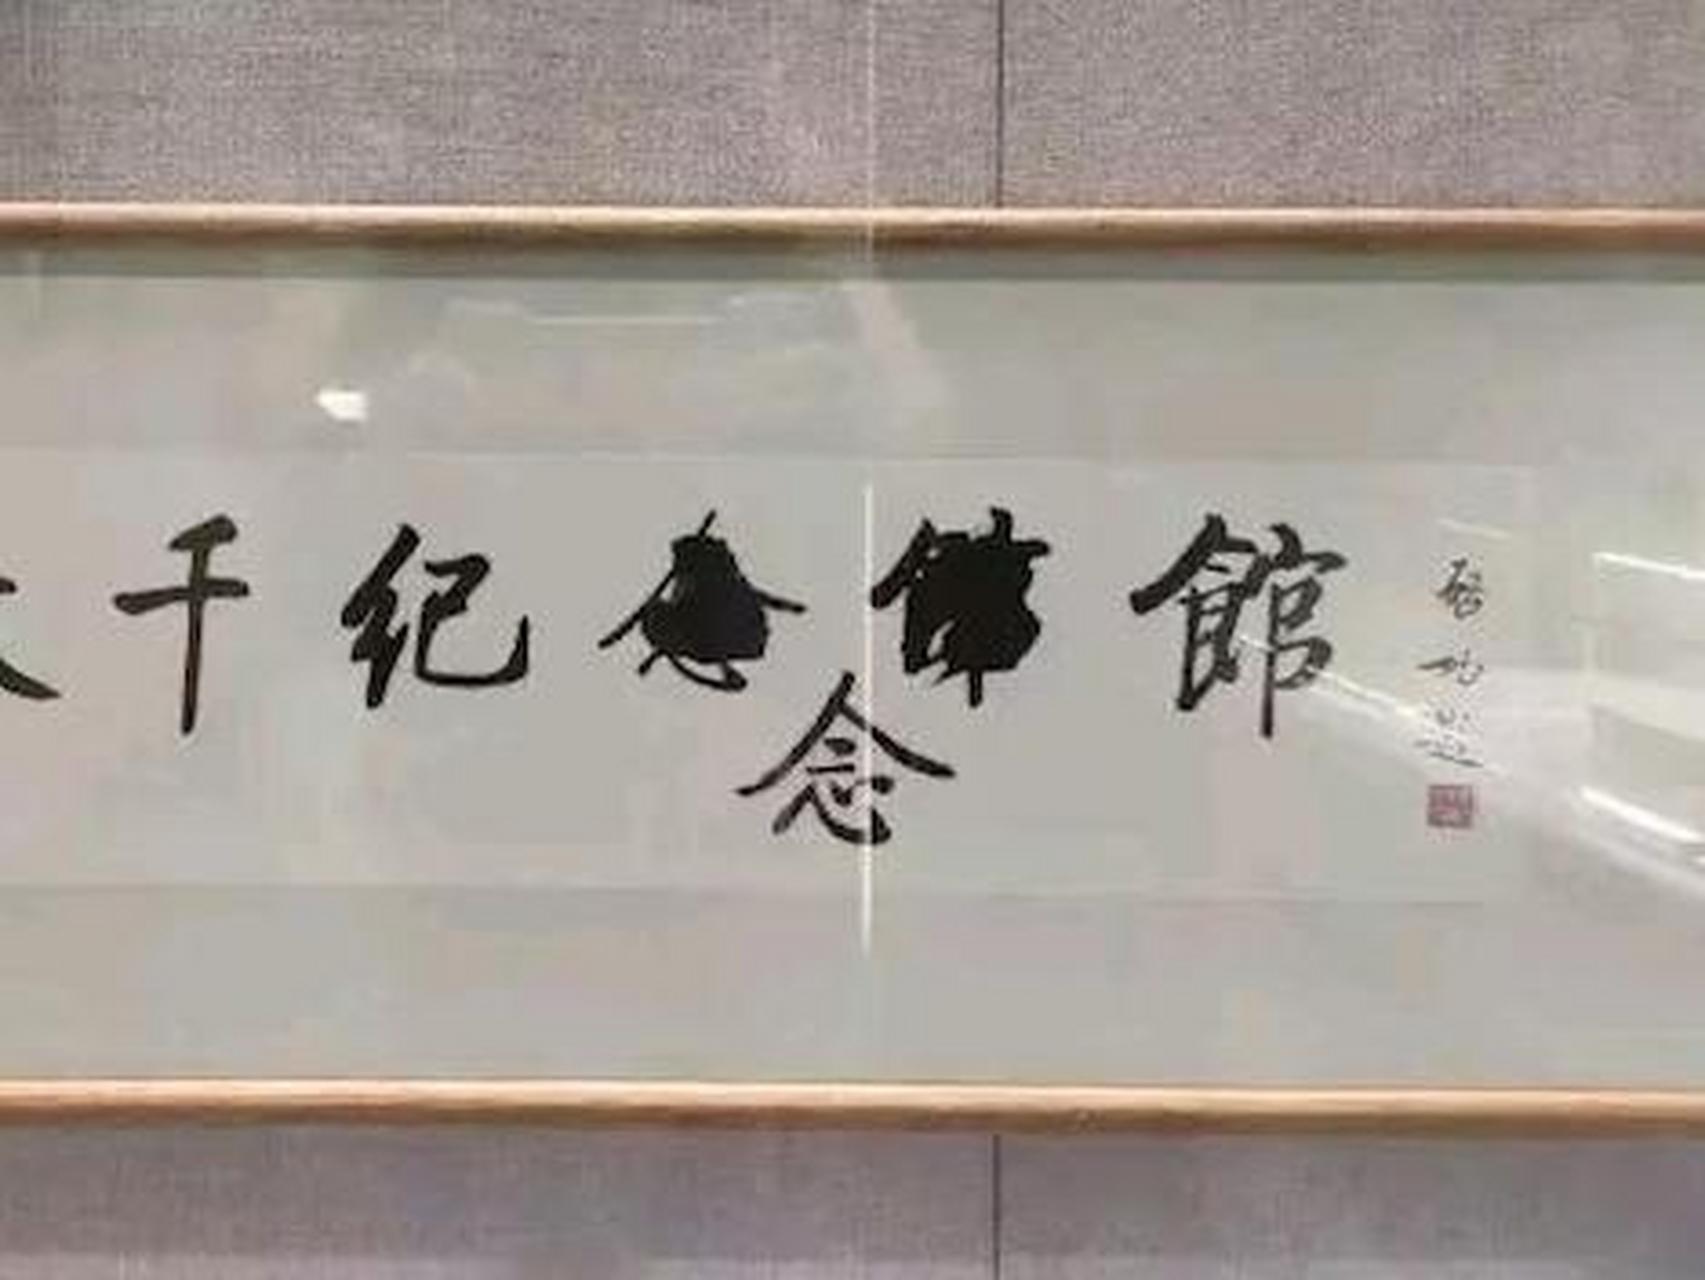 千纪館
念
启功题